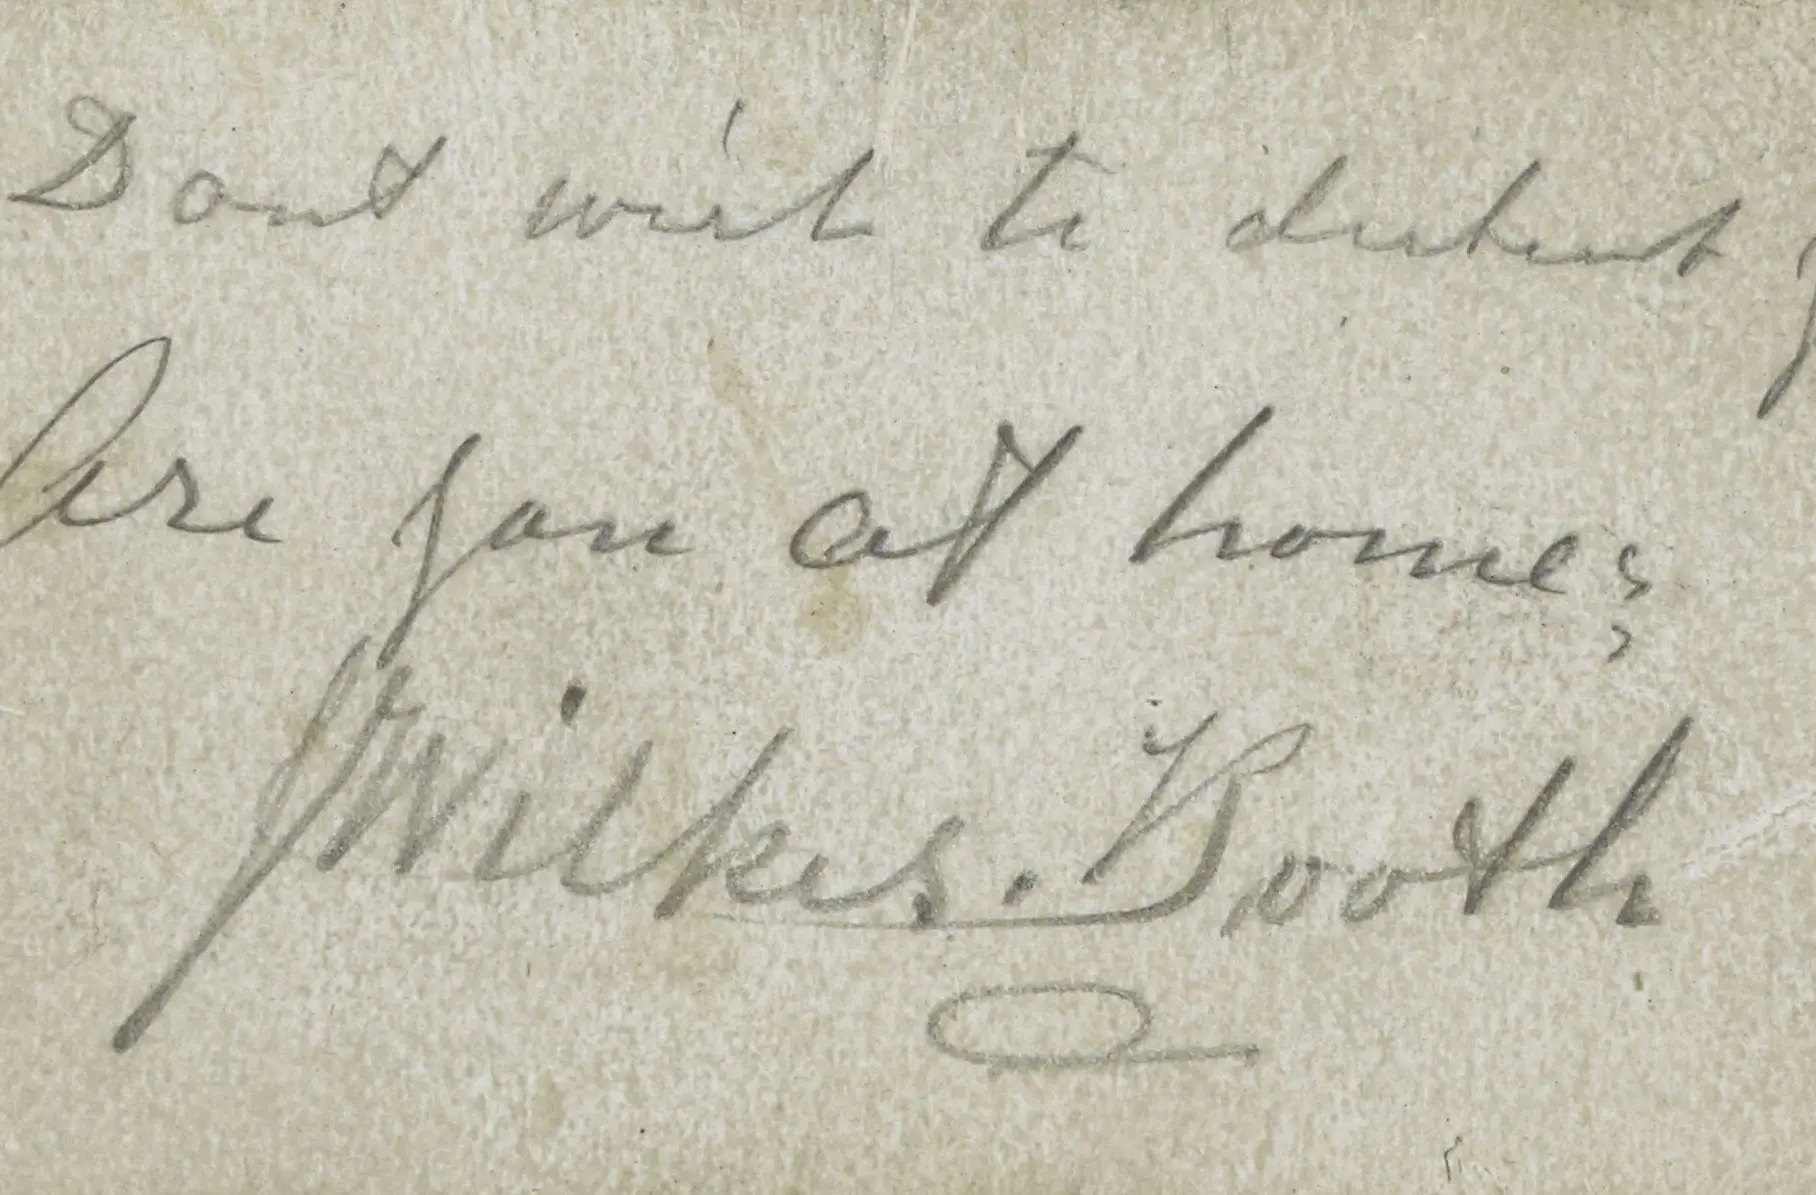 Dont wish to disturb y
Are you at home?
J Wilkes. Booth